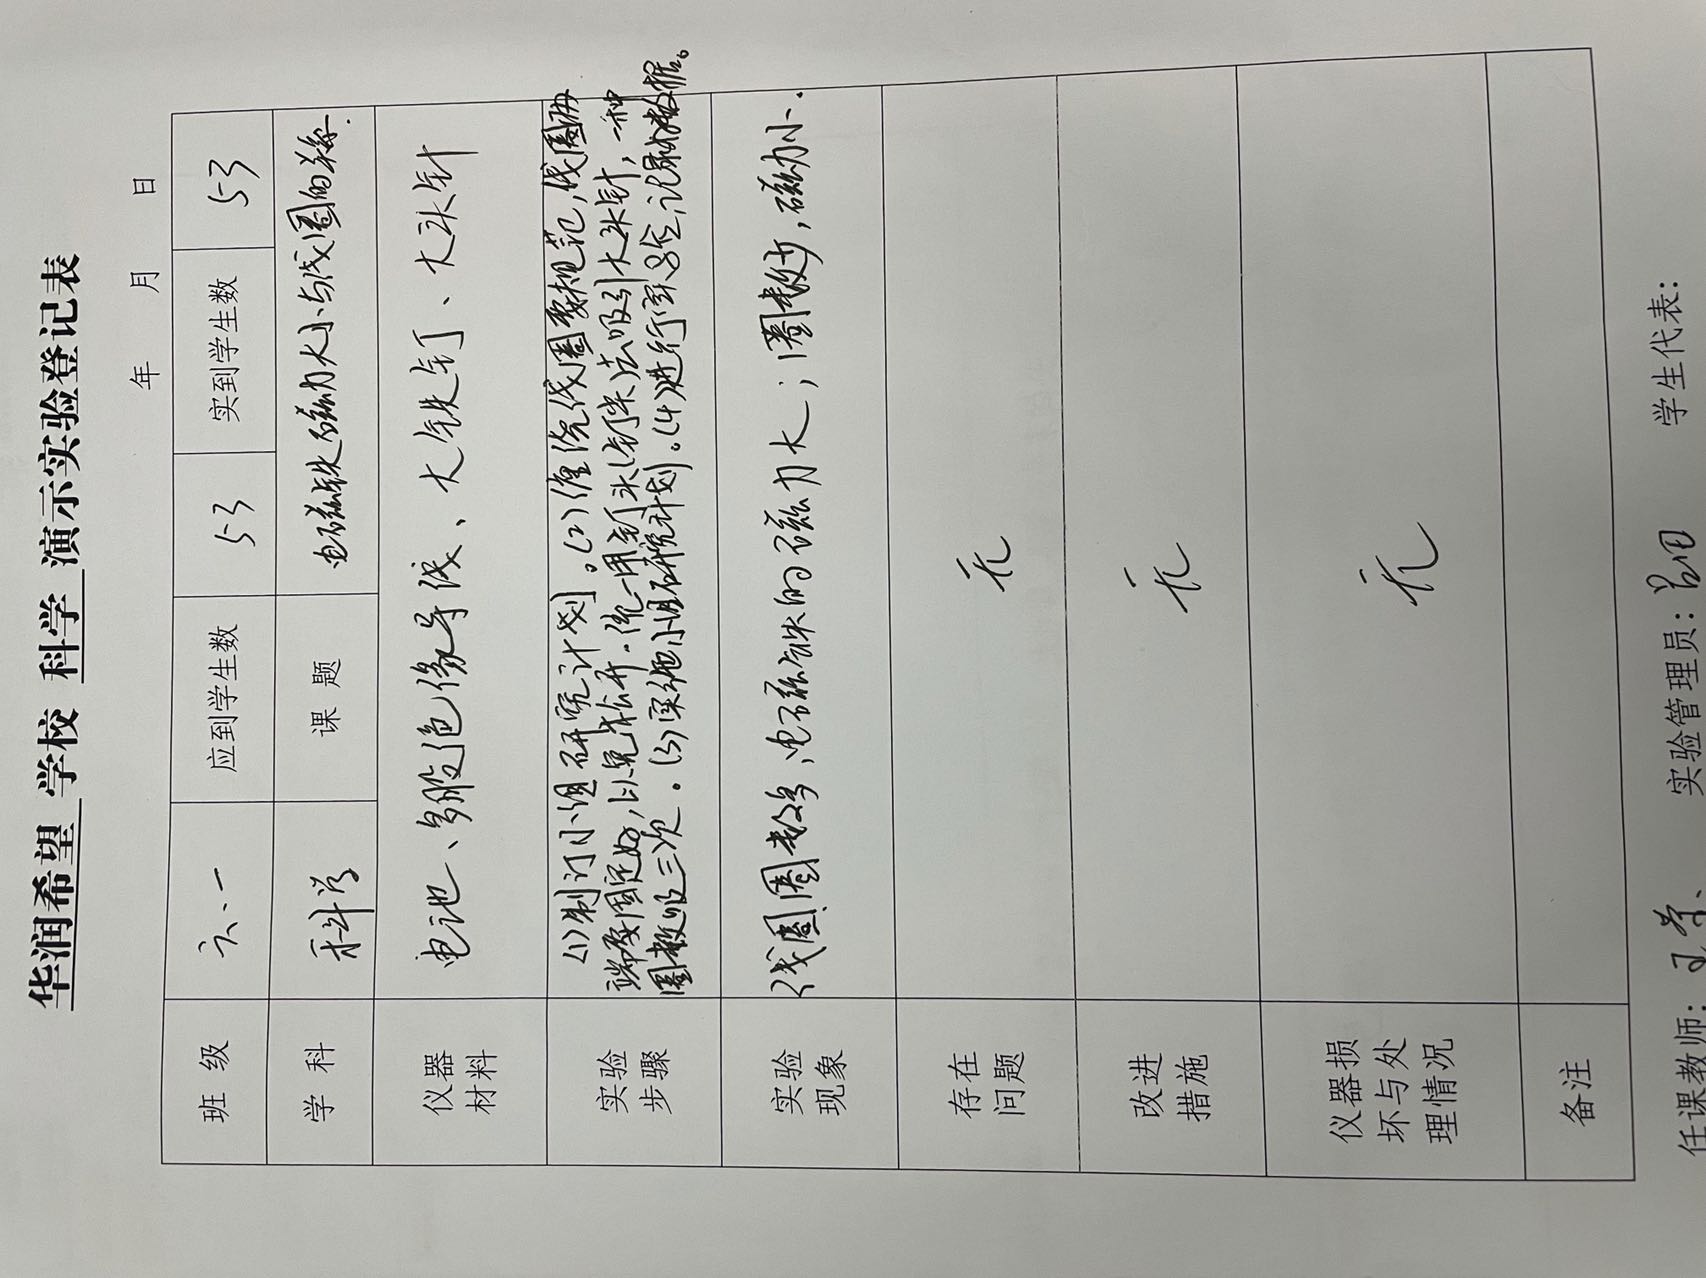 华润希望 学校 科学 演示实验登记表
年 月 日
班 级 六.一 应到学生数 53 实到学生数 53
学 科 科学 课 题 电磁铁磁力大小与线圈的关系.
仪器材料 电池、多股绝缘导线、大铁钉、大头针
实验步骤 (1)制订小组研究计划。(2)缠绕线圈要规范,线圈两
端要固定好,以免松开.统一用钉头(钉尖)去吸引大头针,一种
圈数吸三次.(3)实施小组研究计划。(4)进行实验,记录好数据。
实验现象 线圈圈数多,电磁铁的磁力大;圈数少,磁力小.
存在问题 无
改进措施 无
仪器损坏与处理情况 无
备注
任课教师: 实验管理员: 学生代表: